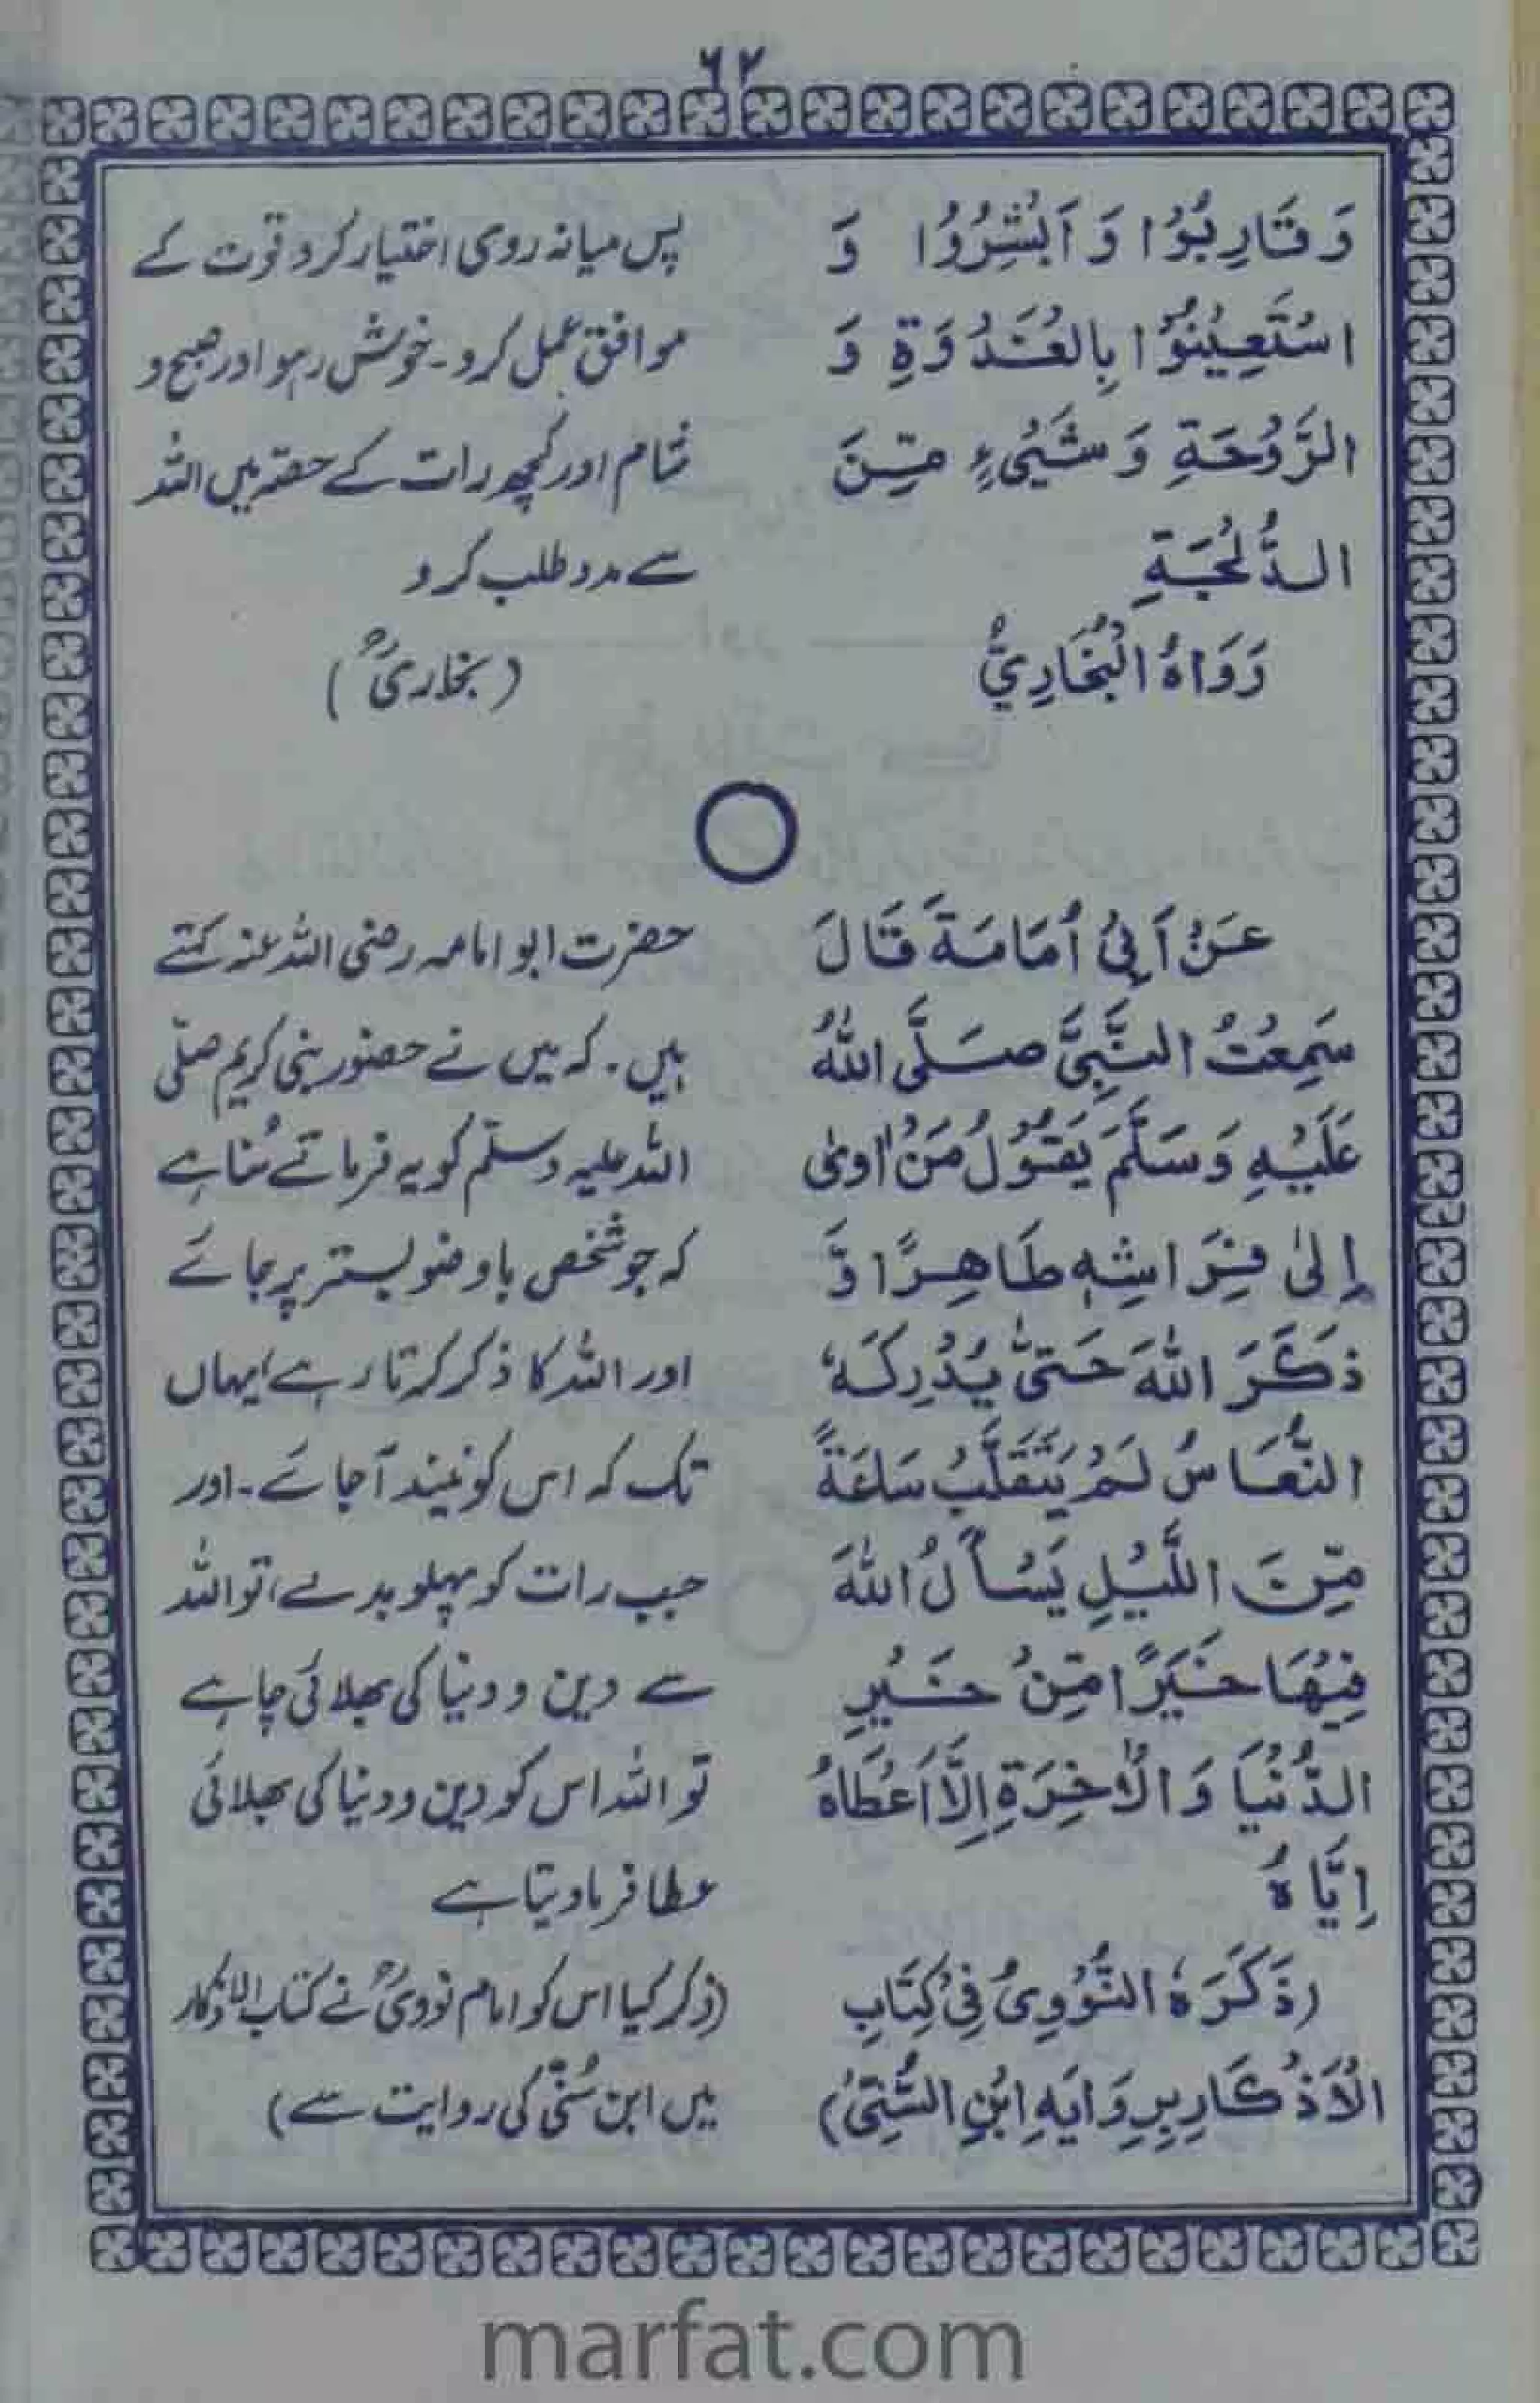 ۶۲
وَقَارِبُوْا وَاَبْشِرُوْا وَ
اسْتَعِيْنُوْا بِالْغَدْوَةِ وَ
الرَّوْحَةِ وَشَيْءٍ مِّنَ
الدُّلْجَةِ
رَوَاهُ الْبُخَارِيُّ
پس میانہ روی اختیار کرو قوت کے
موافق عمل کرو۔ خوش رہو اور صبح و
شام اور کچھ رات کے حصہ میں اللہ
سے مدد طلب کرو
(بخاریؒ)
عَنْ اَبِيْ اُمَامَةَ قَالَ
سَمِعْتُ النَّبِيَّ صَلَّى اللّٰهُ
عَلَيْهِ وَسَلَّمَ يَقُوْلُ مَنْ اٰوىٰ
اِلىٰ فِرَاشِهٖ طَاهِرًا وَّ
ذَكَرَ اللّٰهَ حَتّٰى يُدْرِكَهٗ
النُّعَاسُ لَمْ يَتَقَلَّبْ سَاعَةً
مِّنَ اللَّيْلِ يَسْاَلُ اللّٰهَ
فِيْهَا خَيْرًا مِّنْ خَيْرِ
الدُّنْيَا وَالْاٰخِرَةِ اِلَّا اَعْطَاهُ
اِيَّاهُ
(ذَكَرَهُ النَّوَوِيُّ فِيْ كِتَابِ
الْاَذْكَارِ بِرِوَايَةِ ابْنِ السُّنِّيِّ)
حضرت ابو امامہ رضی اللہ عنہ کہتے
ہیں۔ کہ میں نے حضور نبی کریم صلّی
اللہ علیہ وسلّم کو یہ فرماتے سُنا ہے
کہ جو شخص باوضو بستر پر جائے
اور اللہ کا ذکر کرتا رہے، یہاں
تک کہ اس کو نیند آجائے۔ اور
جب رات کو پہلو بدلے، تو اللہ
سے دین و دنیا کی بھلائی چاہے
تو اللہ اس کو دین و دنیا کی بھلائی
عطا فرما دیتا ہے
(ذکر کیا اس کو امام نوویؒ نے کتاب الاذکار
میں ابن سُنّی کی روایت سے)
marfat.com